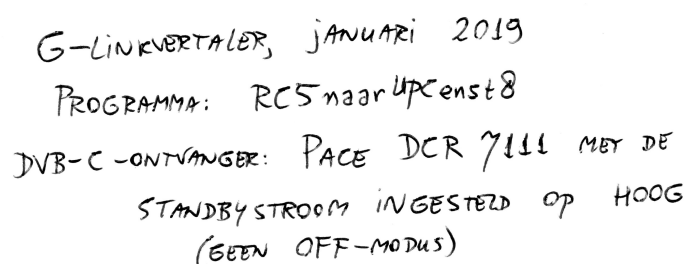 G-LINKVERTALER, JANUARI 2019
PROGRAMMA: RC5naarUPCenst8
DVB-C-ONTVANGER: PACE DCR 7111 MET DE
STANDBYSTROOM INGESTELD OP HOOG
(GEEN OFF-MODUS)